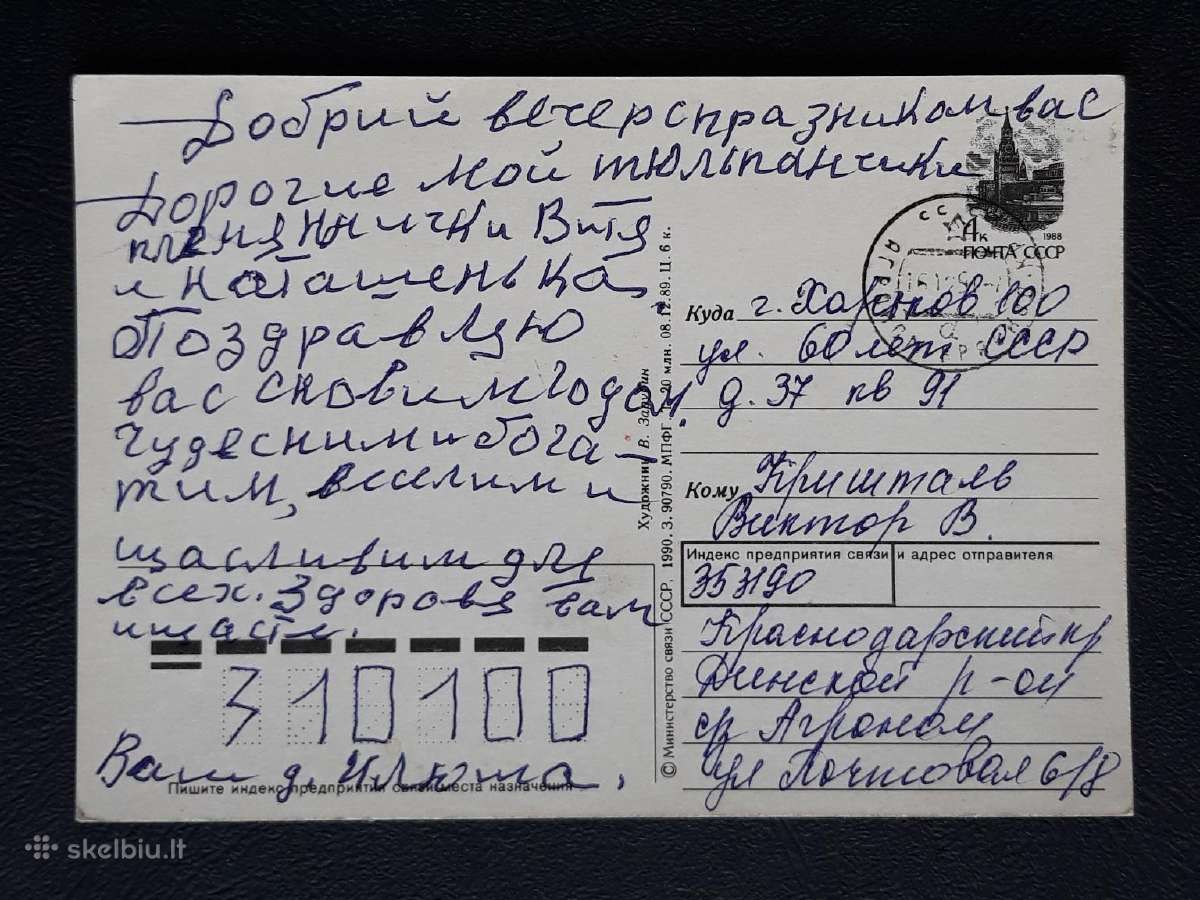 Добрий вечер спразником вас
Дорогие мои тюльпанчики
племяннички Витя
и Наташенька
Поздравляю
вас сновим годом.
Чудесним и бога-
тим, веселим и
щасливим для
всех. Здоровя вам
и щастя.
310100
Ваш д. Илюша.
Пишите индекс предприятия связи места назначения
© Министерство связи СССР, 1990. З. 90790. МПФГ. Т. 20 млн. 08.12.89. Ц. 6 к.
Художник В.
4к
1988
ПОЧТА СССР
Куда г. Харьков 100
ул. 60 лет СССР
д. 37 кв 91
Кому Кришталь
Виктор В.
Индекс предприятия связи и адрес отправителя
353190
Краснодарский кр
Динской р-он
Агроном
ул Почтовая 6/8
skelbiu.lt